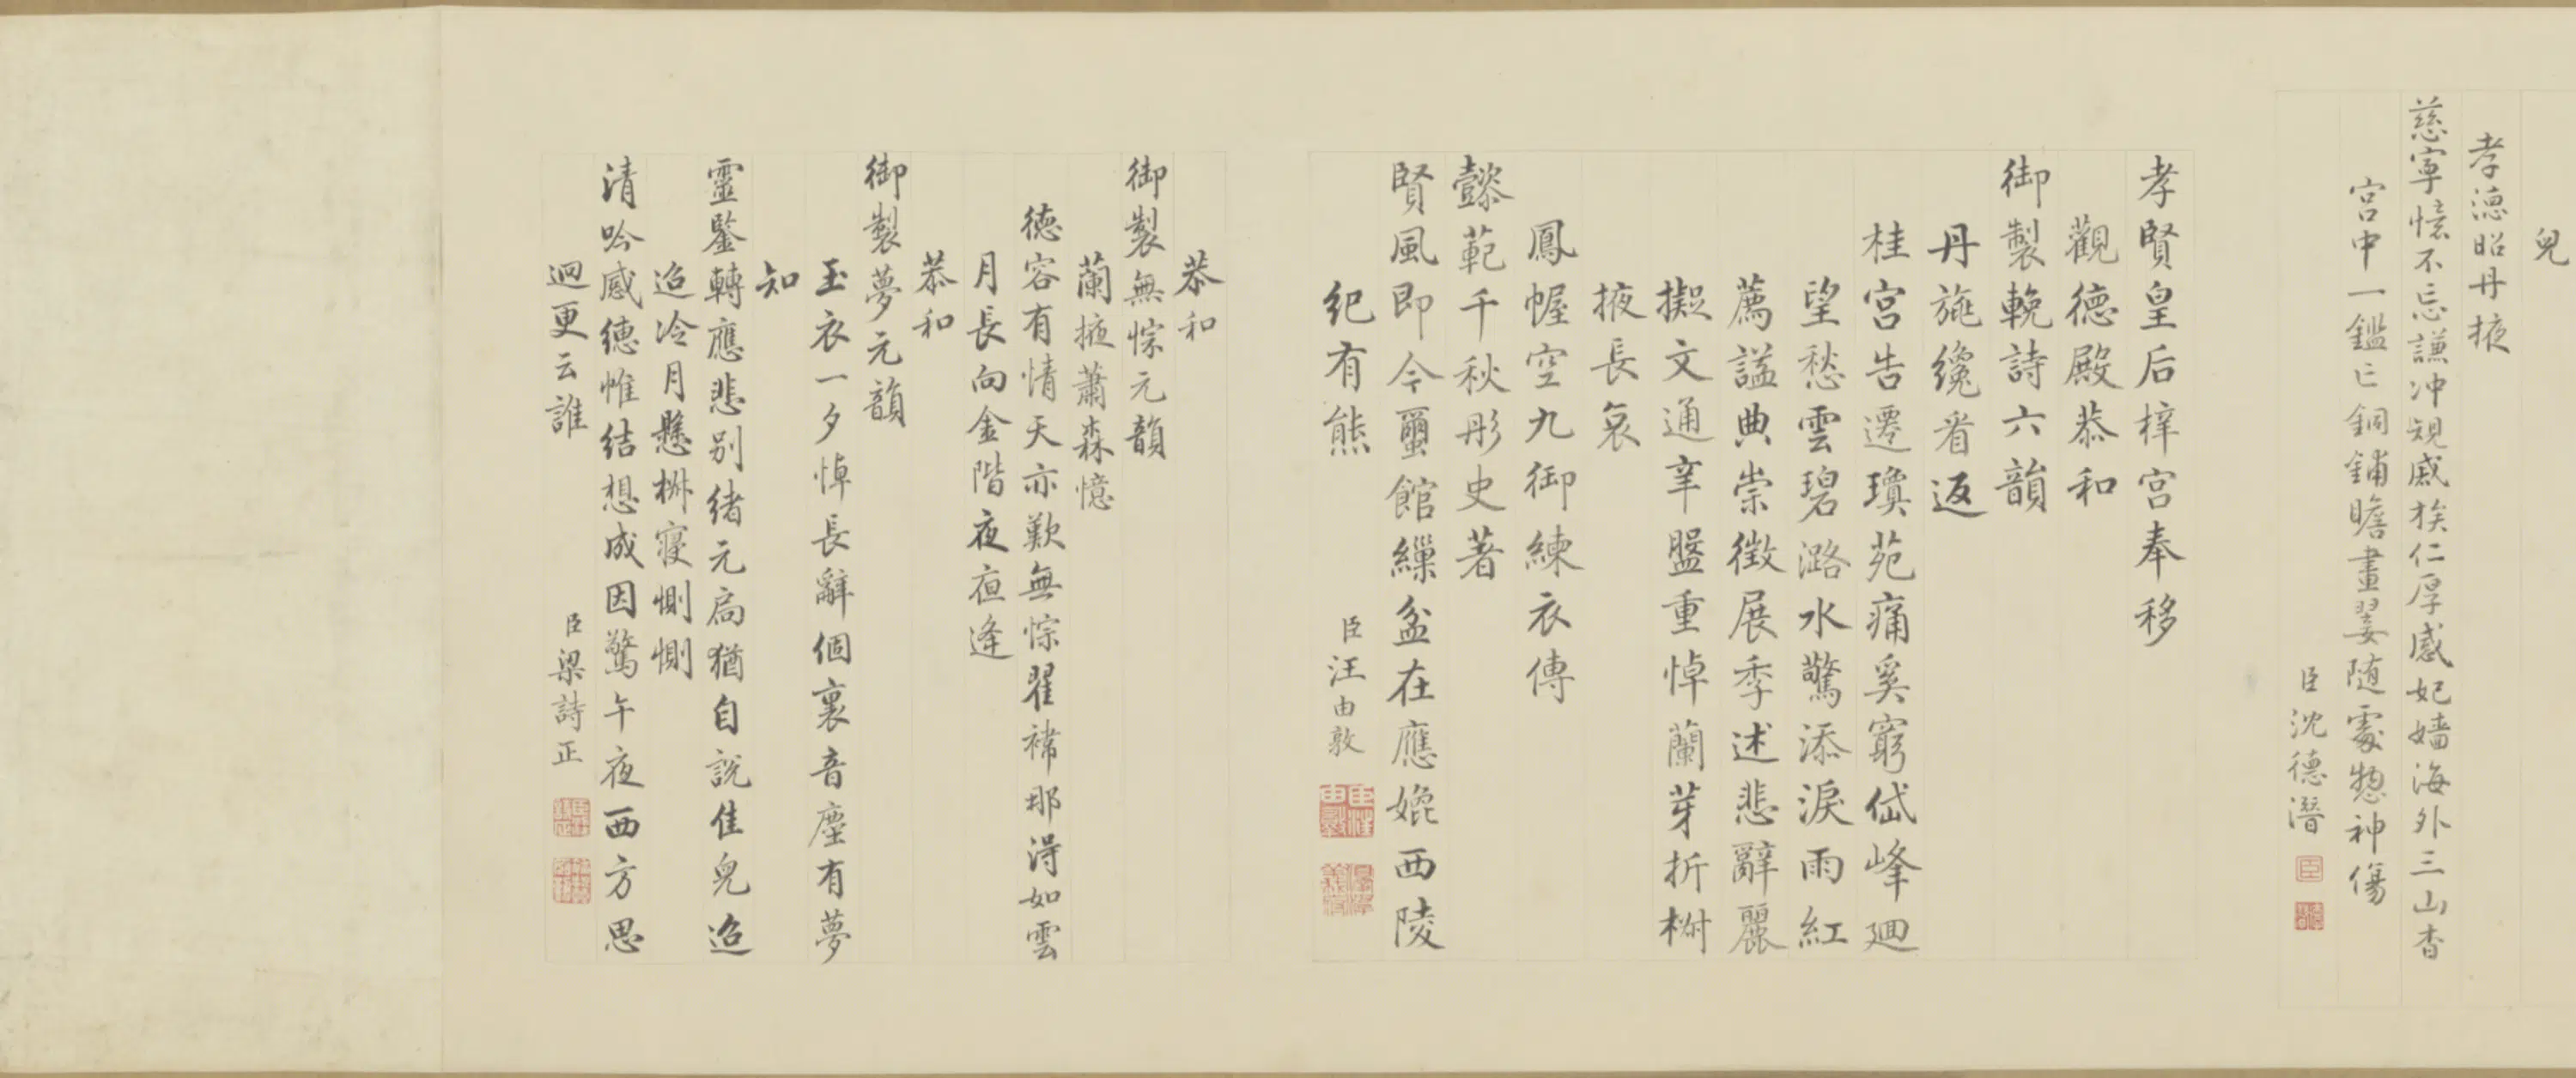 兒
孝德昭丹掖
慈寧憶不忘謙冲規戚族仁厚感妃嬙海外三山杳
宮中一鑑亡銅鋪瞻畫翣随處惣神傷
臣沈德潛
孝賢皇后梓宮奉移
觀德殿恭和
御製輓詩六韻
丹旐纔看返
桂宮告遷瓊苑痛奚窮岱峰廻
望愁雲碧潞水驚添淚雨紅
薦謚典崇徵展季述悲辭麗
擬文通辜盤重悼蘭芽折柎
掖長哀
鳳幄空九御練衣傳
懿範千秋彤史著
賢風即今蠒館繅盆在應媲西陵
紀有熊
臣汪由敦
恭和
御製無悰元韻
蘭掖蕭森憶
德容有情天亦歎無悰翟褘那得如雲
月長向金階夜夜逢
恭和
御製夢元韻
玉衣一夕悼長辭個裏音塵有夢
知
靈鑒轉應悲别緒元扃猶自說佳兒迢
迢冷月懸楙寢惻惻
清吟感德惟結想成因驚午夜西方思
迴更云誰
臣梁詩正